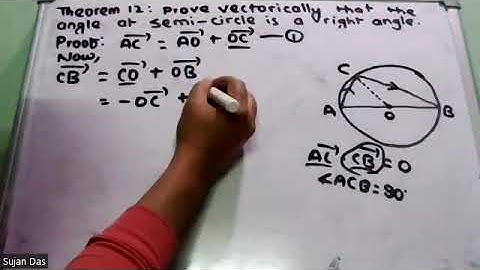 Theorem 12: prove vectorically that the
angle at semi-circle is a right angle.
Proof: AC→ = AO→ + OC→ — ①
Now,
CB→ = CO→ + OB→
= -OC→ +
C
A
O
B
AC→ CB→ = 0
∠ACB = 90°
Sujan Das